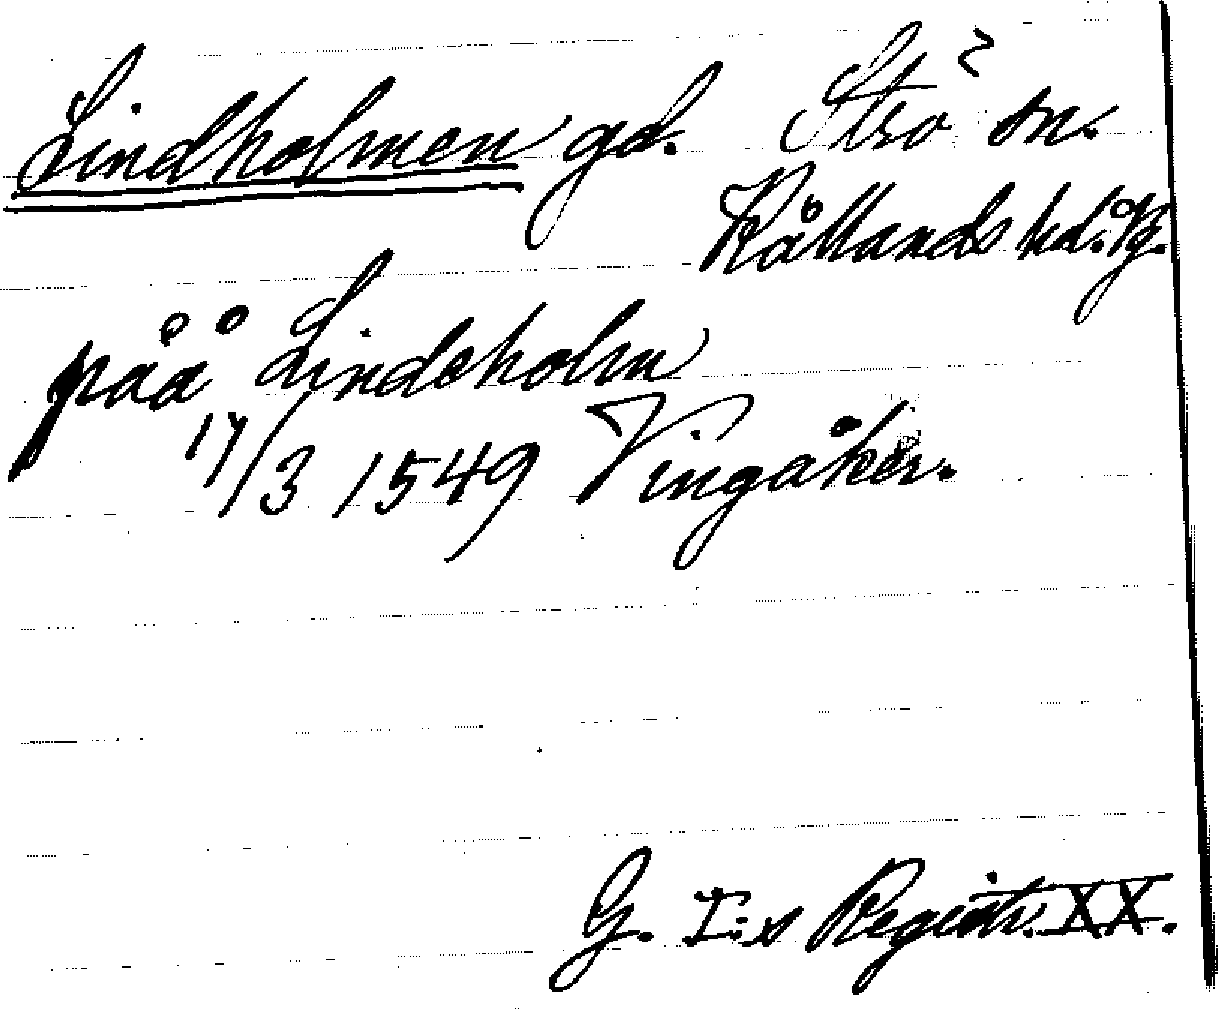 Lindholmen gd. Strö sn.
Kållands hd. Vg.
påå Lindeholm
17/3 1549 Vingåker.
G. I:s Registr. XX.